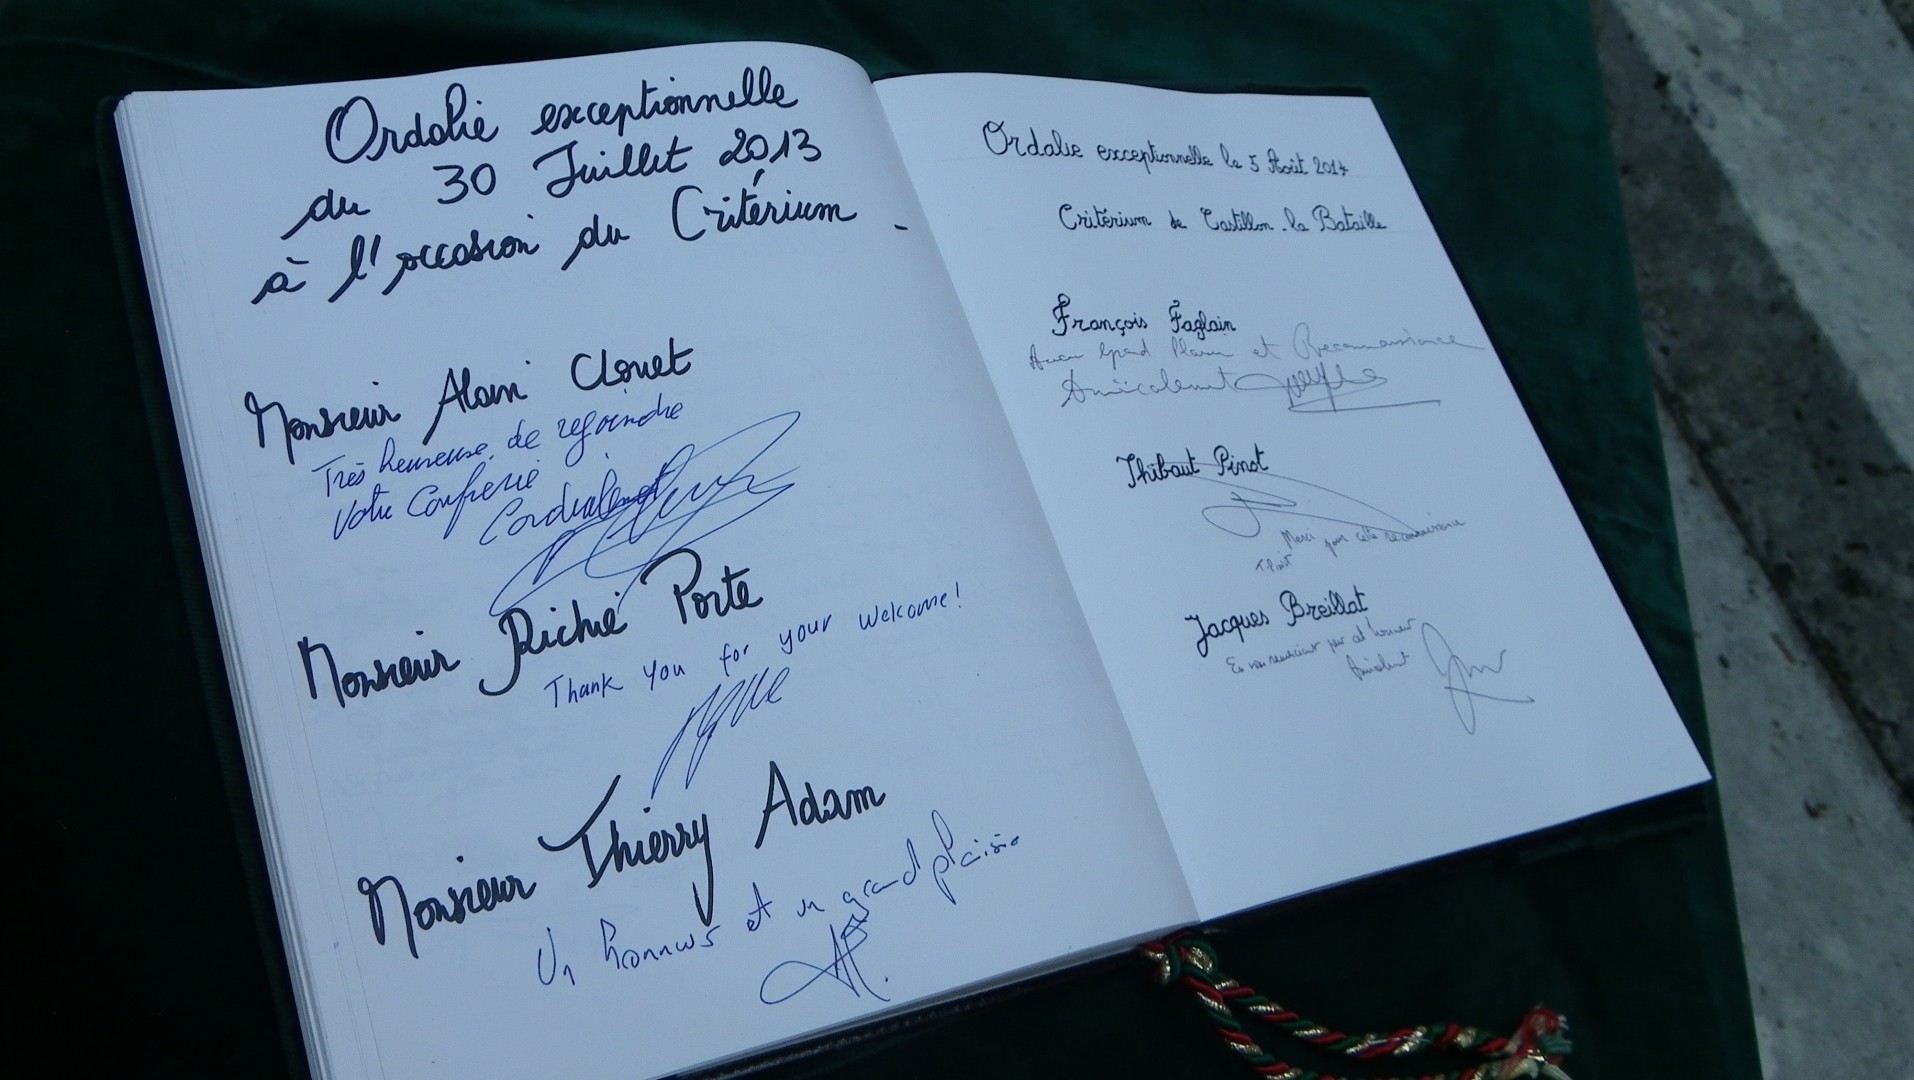 Ordalie exceptionnelle
du 30 Juillet 2013
à l'occasion du Critérium.
Monsieur Alain Clouet
Très heureuse de rejoindre
Votre Confrerie
Cordialement
Monsieur Richie Porte
Thank you for your welcome!
Monsieur Thierry Adam
Un honneur et un grand plaisir
Ordalie exceptionnelle le 5 Août 2014
Critérium de Castillon-la Bataille
François Faglain
Avec Grand Plaisir et Reconnaissance
Amicalement
Thibaut Pinot
Merci pour cette reconnaissance
T. Pinot
Jacques Breillat
En vous remerciant pour cet honneur
Amicalement